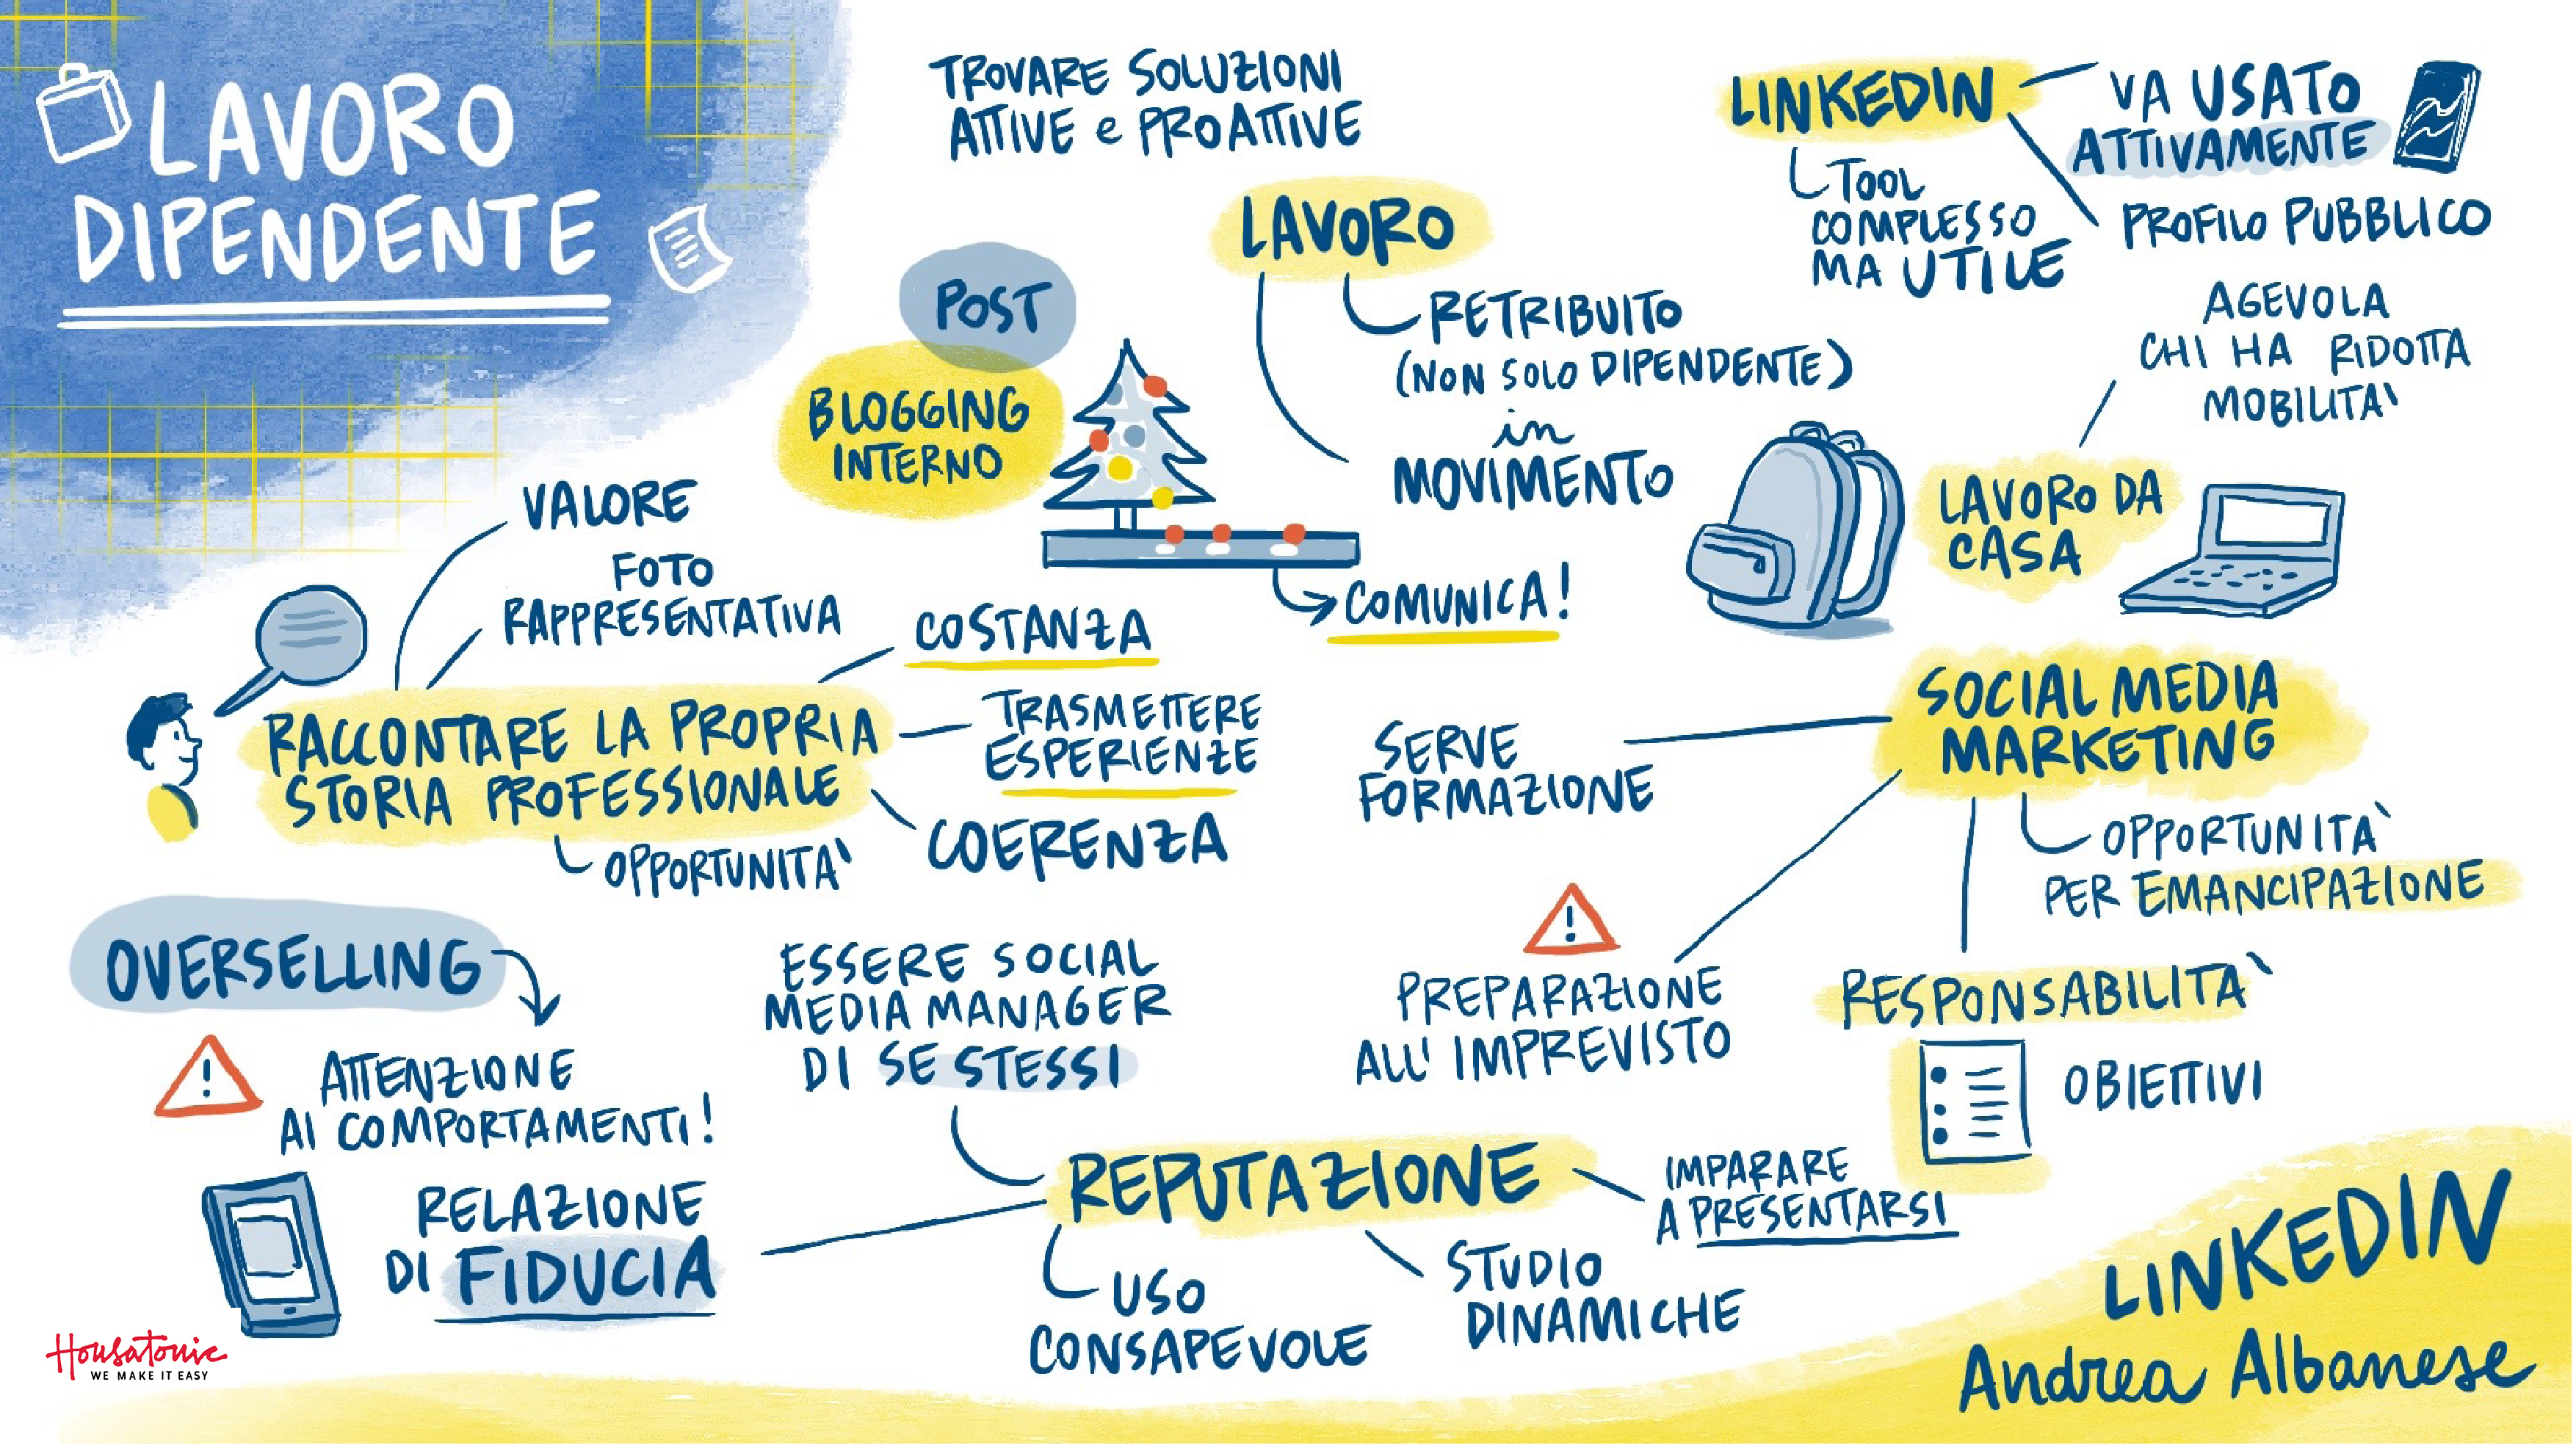 LAVORO
DIPENDENTE
TROVARE SOLUZIONI
ATTIVE e PROATTIVE
LINKEDIN
VA USATO
ATTIVAMENTE
TOOL
COMPLESSO
MA UTILE
PROFILO PUBBLICO
LAVORO
RETRIBUITO
(NON SOLO DIPENDENTE)
in
MOVIMENTO
POST
BLOGGING
INTERNO
COMUNICA!
AGEVOLA
CHI HA RIDOTTA
MOBILITA'
LAVORO DA
CASA
VALORE
FOTO
RAPPRESENTATIVA
COSTANZA
RACCONTARE LA PROPRIA
STORIA PROFESSIONALE
TRASMETTERE
ESPERIENZE
COERENZA
OPPORTUNITA'
SOCIAL MEDIA
MARKETING
SERVE
FORMAZIONE
OPPORTUNITA'
PER EMANCIPAZIONE
PREPARAZIONE
ALL' IMPREVISTO
RESPONSABILITA'
OBIETTIVI
OVERSELLING
ATTENZIONE
AI COMPORTAMENTI!
ESSERE SOCIAL
MEDIA MANAGER
DI SE STESSI
RELAZIONE
DI FIDUCIA
REPUTAZIONE
IMPARARE
A PRESENTARSI
USO
CONSAPEVOLE
STUDIO
DINAMICHE
LINKEDIN
Andrea Albanese
Housatonic
WE MAKE IT EASY